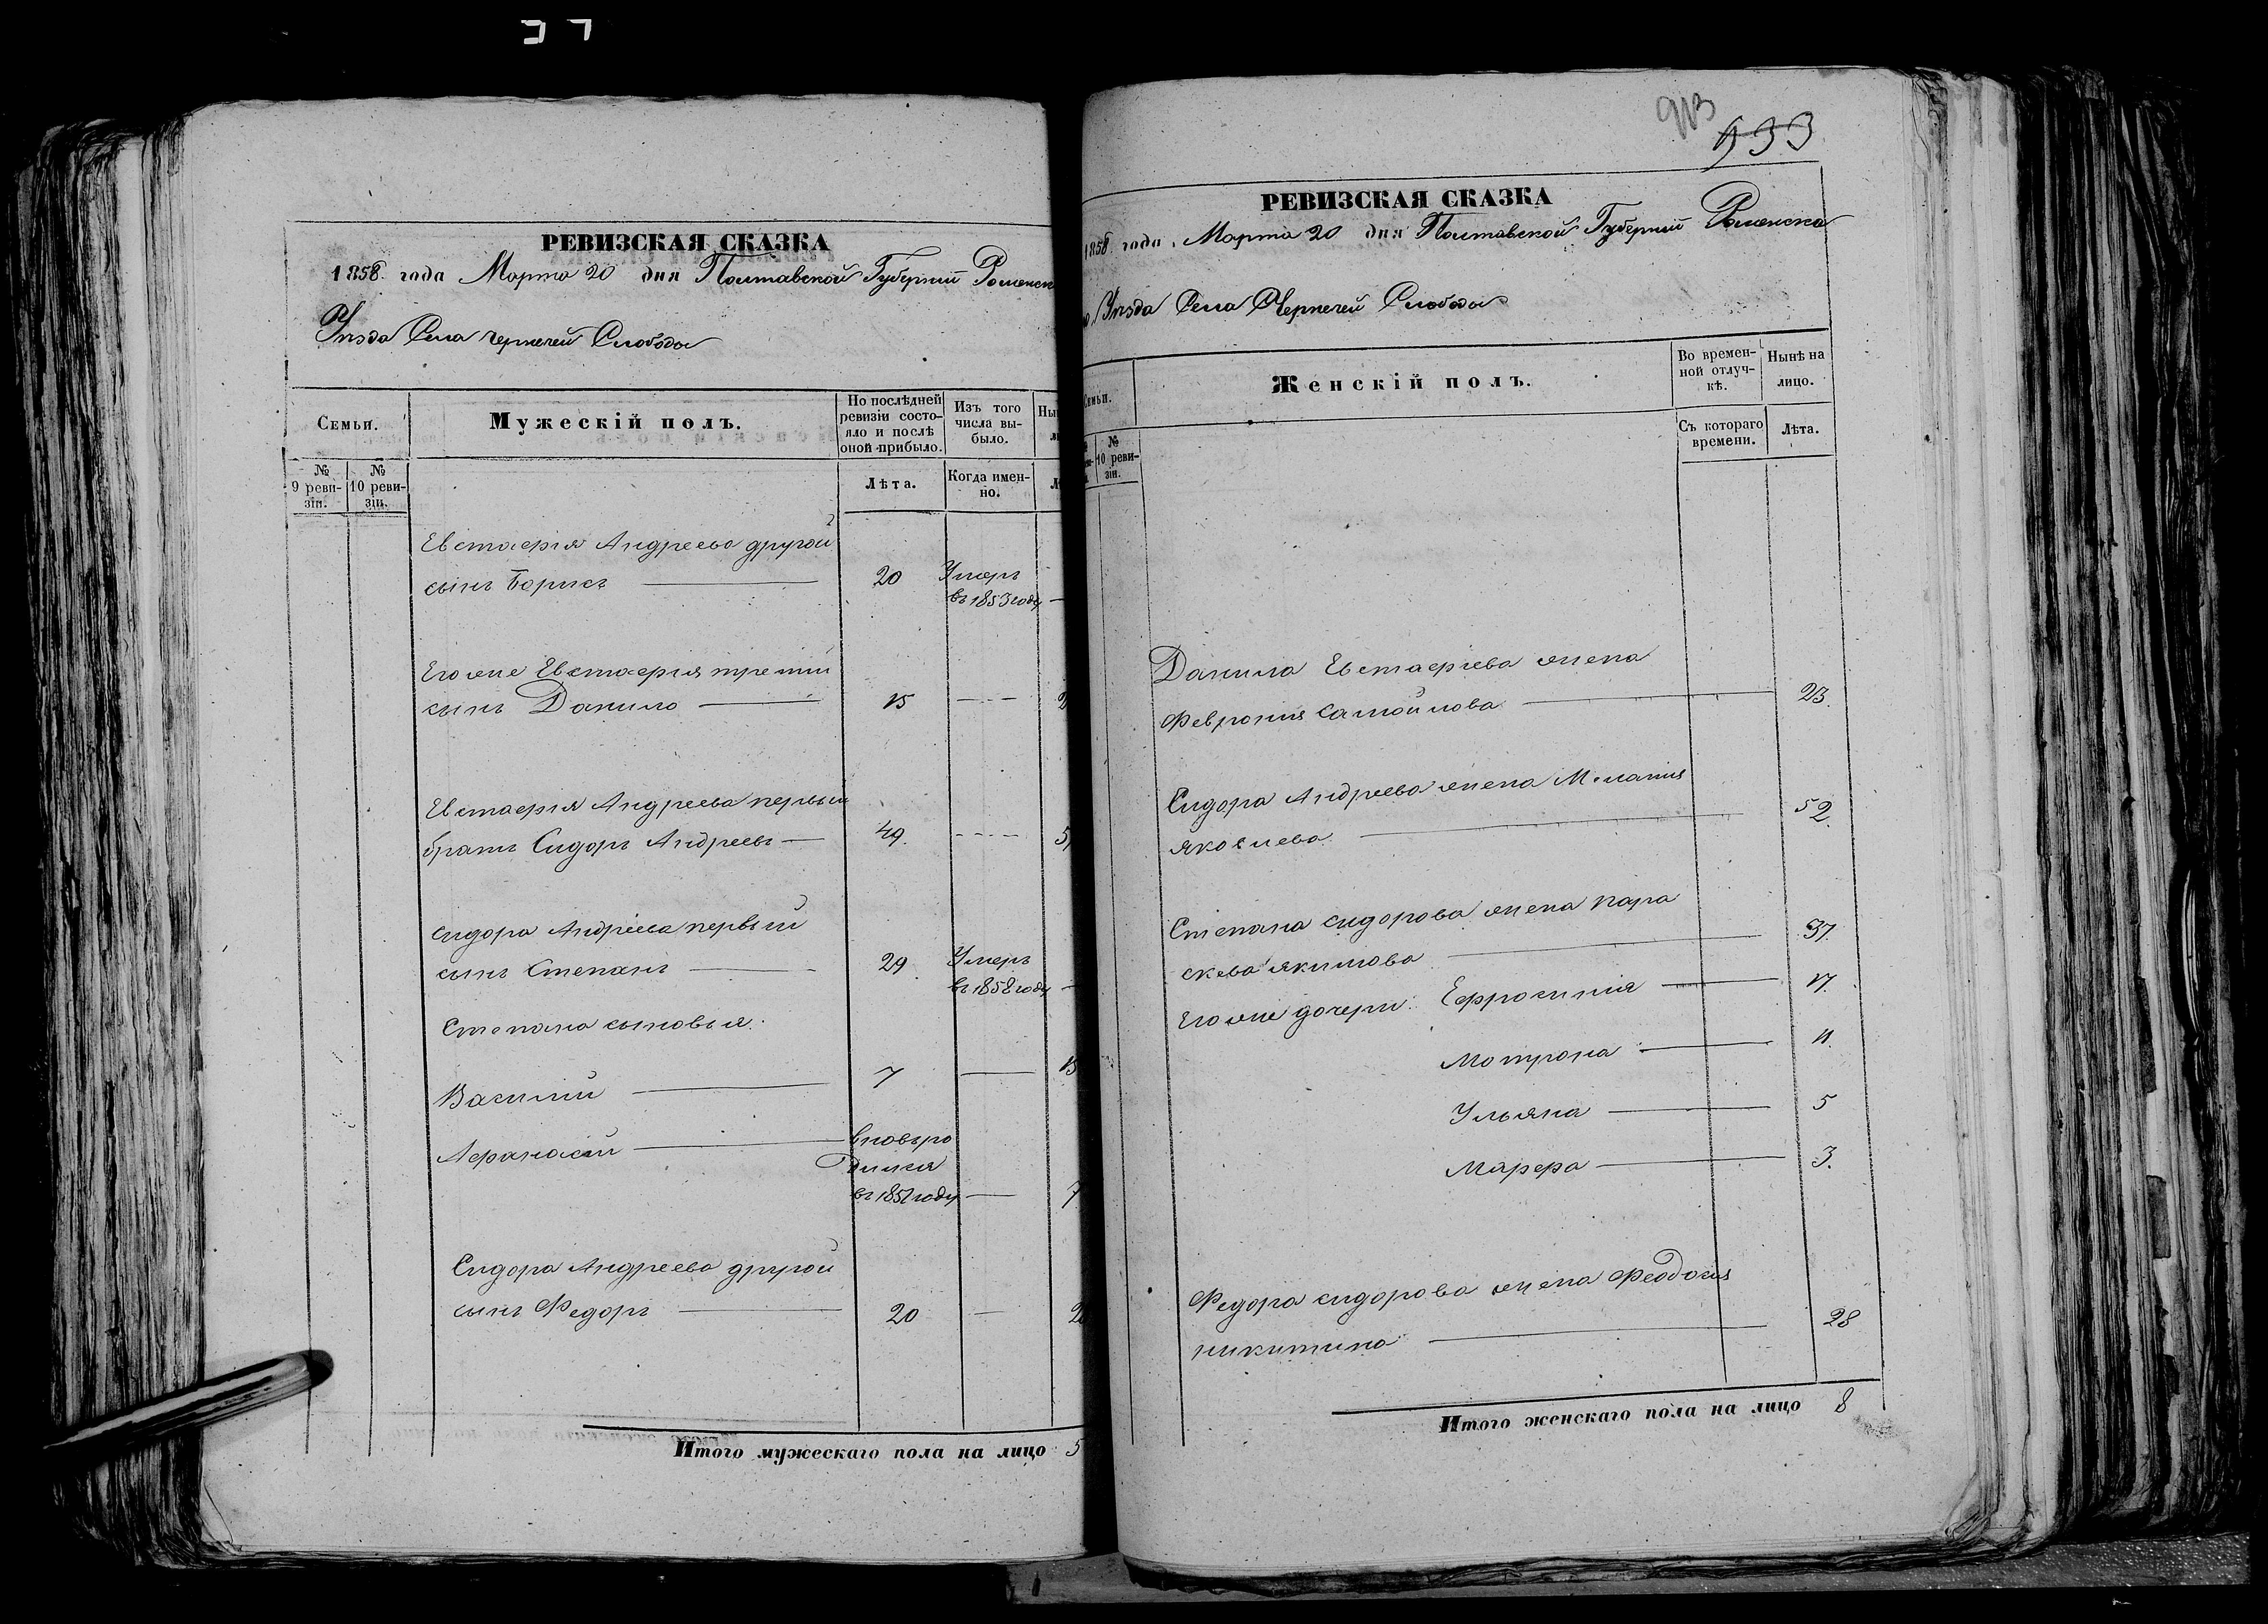 РЕВИЗСКАЯ СКАЗКА
1858 года Марта 20 дня Полтавской Губернiи Роменск
Уѣзда Села Чернечей Слободы
Семьи.
Мужескiй полъ.
По послѣдней ревизiи состояло и послѣ оной прибыло.
Изъ того числа выбыло.
№ 9 ревизiи.
№ 10 ревизiи.
Лѣта.
Когда именно.
Евстафiя Андреева другой
сынъ Борисъ 20 Умеръ
въ 1853 году
Егоже Евстафiя третiй
сынъ Данило 15
Евстафiя Андреева первый
братъ Сидоръ Андреевъ 49.
Сидора Андреева первый
сынъ Степанъ 29 Умеръ
въ 1858 году
Степана сыновья:
Василiй 7
Афанасiй вновь ро
дился
въ 1851 году 7
Сидора Андреева другой
сынъ Федоръ 20
Итого мужескаго пола на лицо 5
913
933
РЕВИЗСКАЯ СКАЗКА
1858 года Марта 20 дня Полтавской Губернiи Роменска
Уѣзда Села Чернечей Слободы
Семьи.
Женскiй полъ.
Во временной отлучкѣ.
Нынѣ на лицо.
№ 10 ревизiи.
Съ котораго времени.
Лѣта.
Данила Евстафiева жена
Феврония Самойлова 23.
Сидора Андреева жена Меланiя
Яковлева 52.
Степана Сидорова жена Пара
скева Якимова 37.
Егоже дочери: Ефросинiя 17.
Мотрона 11.
Ульяна 5
Марфа 3.
Федора Сидорова жена Феодосiя
Никитина 28
Итого женскаго пола на лицо 8